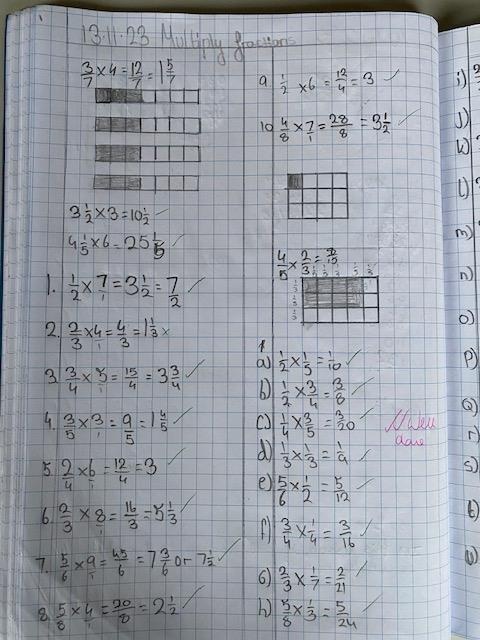 13.11.23 Multiply fractions
3/7 × 4 = 12/7 = 1 5/7
3 1/2 × 3 = 10 1/2 ✓
4 1/5 × 6 = 25 1/5 ✓
1. 1/2 × 7/1 = 3 1/2 = 7/2 ✓
2. 2/3 × 4/1 = 4/3 = 1 1/3 ×
3. 3/4 × 5/1 = 15/4 = 3 3/4 ✓
4. 3/5 × 3/1 = 9/5 = 1 4/5 ✓
5. 2/4 × 6/1 = 12/4 = 3 ✓
6. 2/3 × 8/1 = 16/3 = 5 1/3 ✓
7. 5/6 × 9/1 = 45/6 = 7 3/6 or 7 1/2 ✓
8. 5/8 × 4/1 = 20/8 = 2 1/2 ✓
9 1/2 × 6 = 12/4 = 3 ✓
10 4/8 × 7/1 = 28/8 = 3 1/2 ✓
4/5 × 2/3 = 8/15
a) 1/2 × 1/5 = 1/10 ✓
b) 1/2 × 3/4 = 3/8 ✓
c) 1/4 × 3/5 = 3/20 ✓
d) 1/3 × 1/3 = 1/9 ✓
e) 5/6 × 1/2 = 5/12 ✓
f) 3/4 × 1/4 = 3/16 ✓
g) 2/3 × 1/7 = 2/21 ✓
h) 5/8 × 1/3 = 5/24 ✓
Well
done
i)
j)
k)
l)
m)
n)
o)
p)
q)
r)
s)
t)